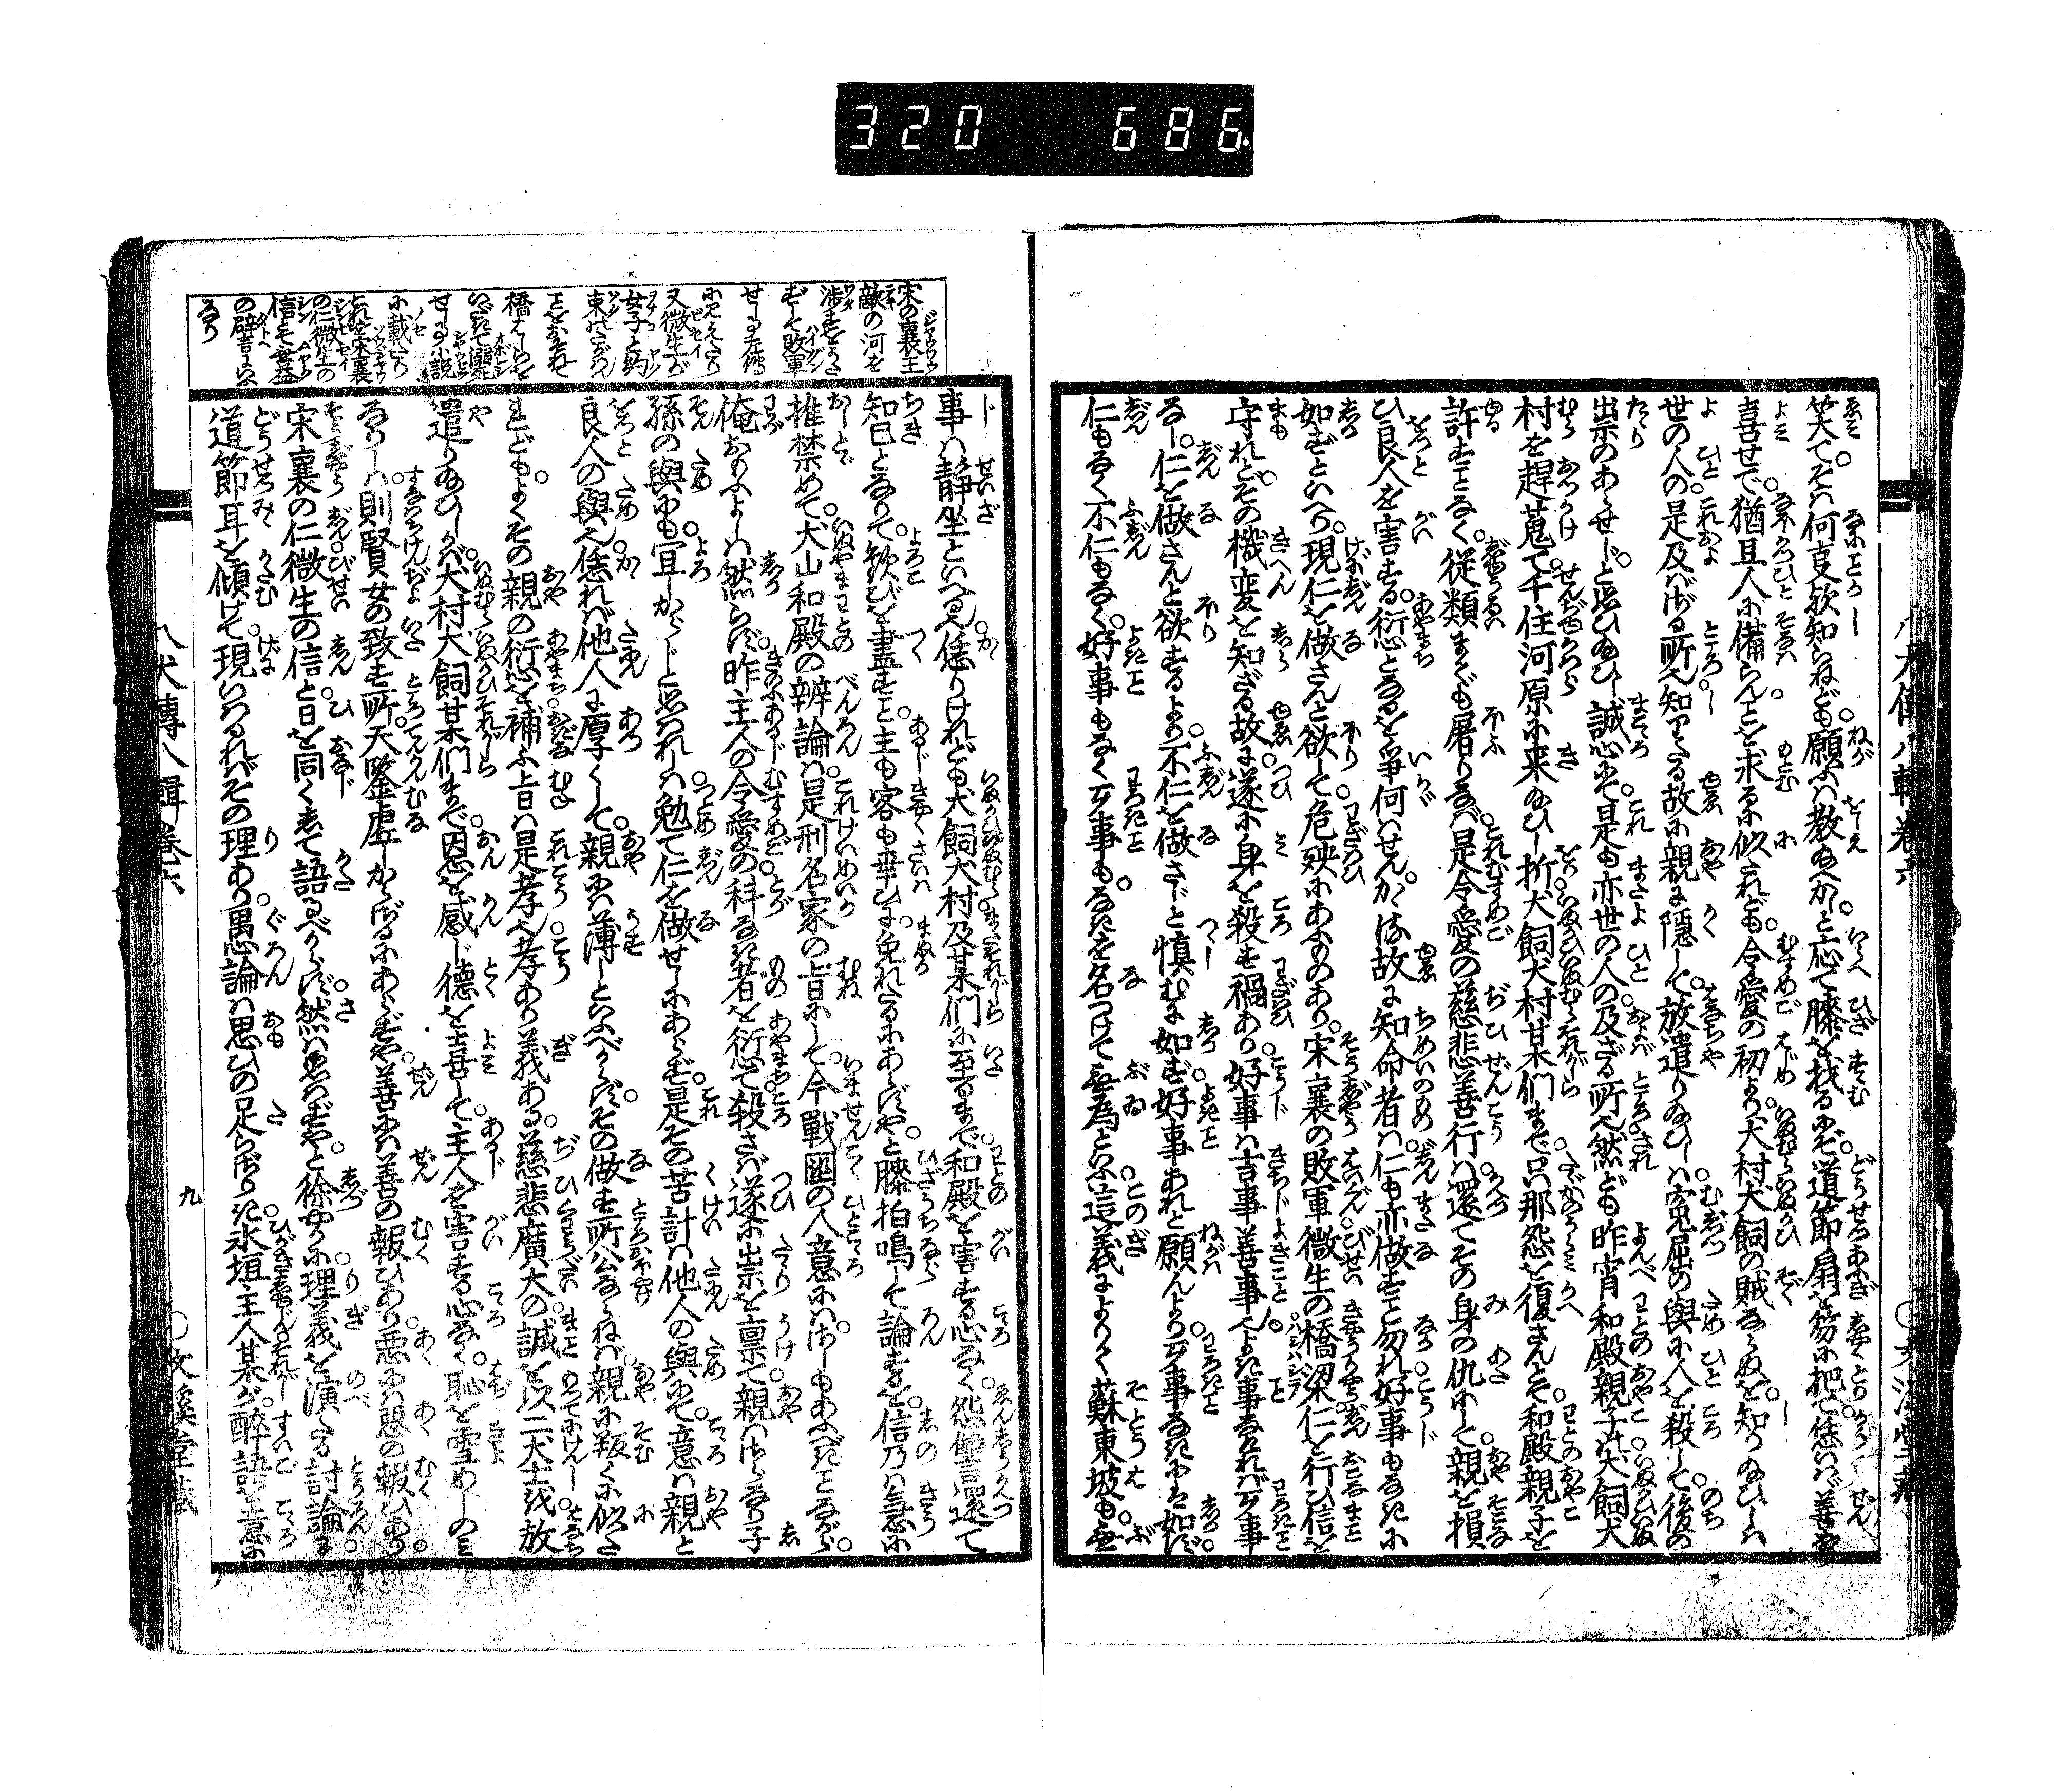 320 686
笑て。そは何事欤知らねども。願ふは教給へかし。と応て膝を找るにぞ。道節扇を笏に把て。恁はいへ善も
喜せで。猶且人に備らんことを求るに似たれども。令愛の初より。犬村犬飼の賊ならぬを。知り給ひしは
世の人の。是及ばざる所也。知りたる故に親に隠して。放遣り給ひしは。寃屈の與に人を殺して。後の
出祟のあらせじ。と思ひ給ひし誠心にて。是も亦世の人の。及ざる所也。然ども昨宵和殿親子。犬飼犬
村を趕蒐て。千住河原に来給ひし折。犬飼犬村某們まで。只那怨を復さんとて。和殿親子を
許すことなく。従類までも屠りなば。是令愛の慈悲善行は。還てその身の仇にして。親を損
ひ良人を害する。衍ちとなるを争何はせん。かゝる故に知命者は。仁も亦做すこと勿れ。好事もなきに
如ずといへり。現仁を做さんと欲して。危殃にあふものあり。宋襄の敗軍。微生の橋梁。仁を行ひ信を
守れど。その機変を知ざる故に。遂に身を殺す禍あり。好事は吉事善事也。よき事なければ歹事
なし。仁を做さんと欲するより。不仁を做さじと慎むに如ず。好事あれと願んより。歹事なきには如ず。
仁もなく不仁もなく。好事もなく歹事も。なきを名つけて無為といふ。這義によりて蘇東坡も。無
八犬傳八輯卷六
事は静坐といへる也。恁りけれども犬飼犬村。及某們に至るまで。和殿を害する心なく。怨讐還て
知己となりて。歓びを盡すこと。主も客も幸ひに。免れたるにあらずや。と膝拍鳴して論ずるを。信乃は急に
推禁めて。犬山和殿の辨論は。是刑名家の旨にして。今戰國の人意には。さしもあるべきことながら。
俺おもふよしは然らず。昨主人の令愛の。科なき者を衍て殺さば。遂に出祟を禀て。親はさらなり子
孫の與にも。宜しからじと思はれしは。勉て仁を做せしにあらず。是その苦計は他人の與にて。意は親と
良人の與也。恁れば他人に厚くして。親には薄しといふべからず。その做す所公ならねば。親に叛くに似た
れども。よくその親の衍を。補ふ旨は是孝也。孝あり義ある。慈悲廣大の誠を以。二犬士を放
遣り給ひしかば。犬村犬飼某們まで。因を感じ德を喜して。主人を害する心なく。恥を雪めしのミ
なりしは。則賢女の致す所。天鑒虚しからざるにあらずや。善には善の報ひあり。悪には悪の報ひあり。
宋襄の仁微生の信と。日を同くして語るべからず。然は思はずや。と徐やかに。理義を演たる討論に。
道節耳を傾けて。現いはるればその理あり。愚論は思ひの足らざりき。氷垣主人某が。醉語を意に
宋の襄王
敵の河を
渉すをうた
ずして敗軍
せしは左傳
に見えたり
又微生が
女子と約
束せしを
橋はしらを
いだきて溺死
せしは小説
に載たり
これを宋襄
の仁微生の
信とて無益
の譬にいふ
なり
八犬傳八輯卷六
九
○文溪堂藏